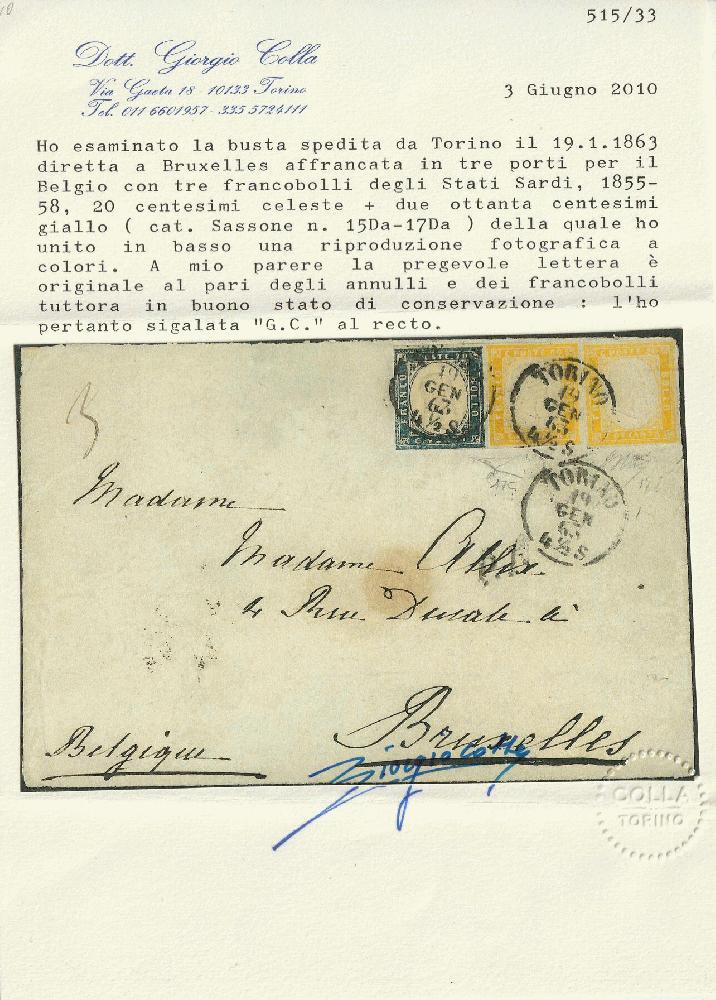 515/33
Dott. Giorgio Colla
Via Gaeta 18 - 10133 Torino
Tel. 011 6601957 - 335 5724111
3 Giugno 2010
Ho esaminato la busta spedita da Torino il 19.1.1863
diretta a Bruxelles affrancata in tre porti per il
Belgio con tre francobolli degli Stati Sardi, 1855-
58, 20 centesimi celeste + due ottanta centesimi
giallo ( cat. Sassone n. 15Da-17Da ) della quale ho
unito in basso una riproduzione fotografica a
colori. A mio parere la pregevole lettera è
originale al pari degli annulli e dei francobolli
tuttora in buono stato di conservazione : l'ho
pertanto sigalata "G.C." al recto.
FRANCO BOLLO
19
GEN
63
4½ S
TORINO
19
GEN
63
4½ S
TORINO
19
GEN
63
4½ S
3
Madame
Madame Allix
4 Rue Ducale à
Bruxelles
Belgique
Giorgio Colla
COLLA
TORINO